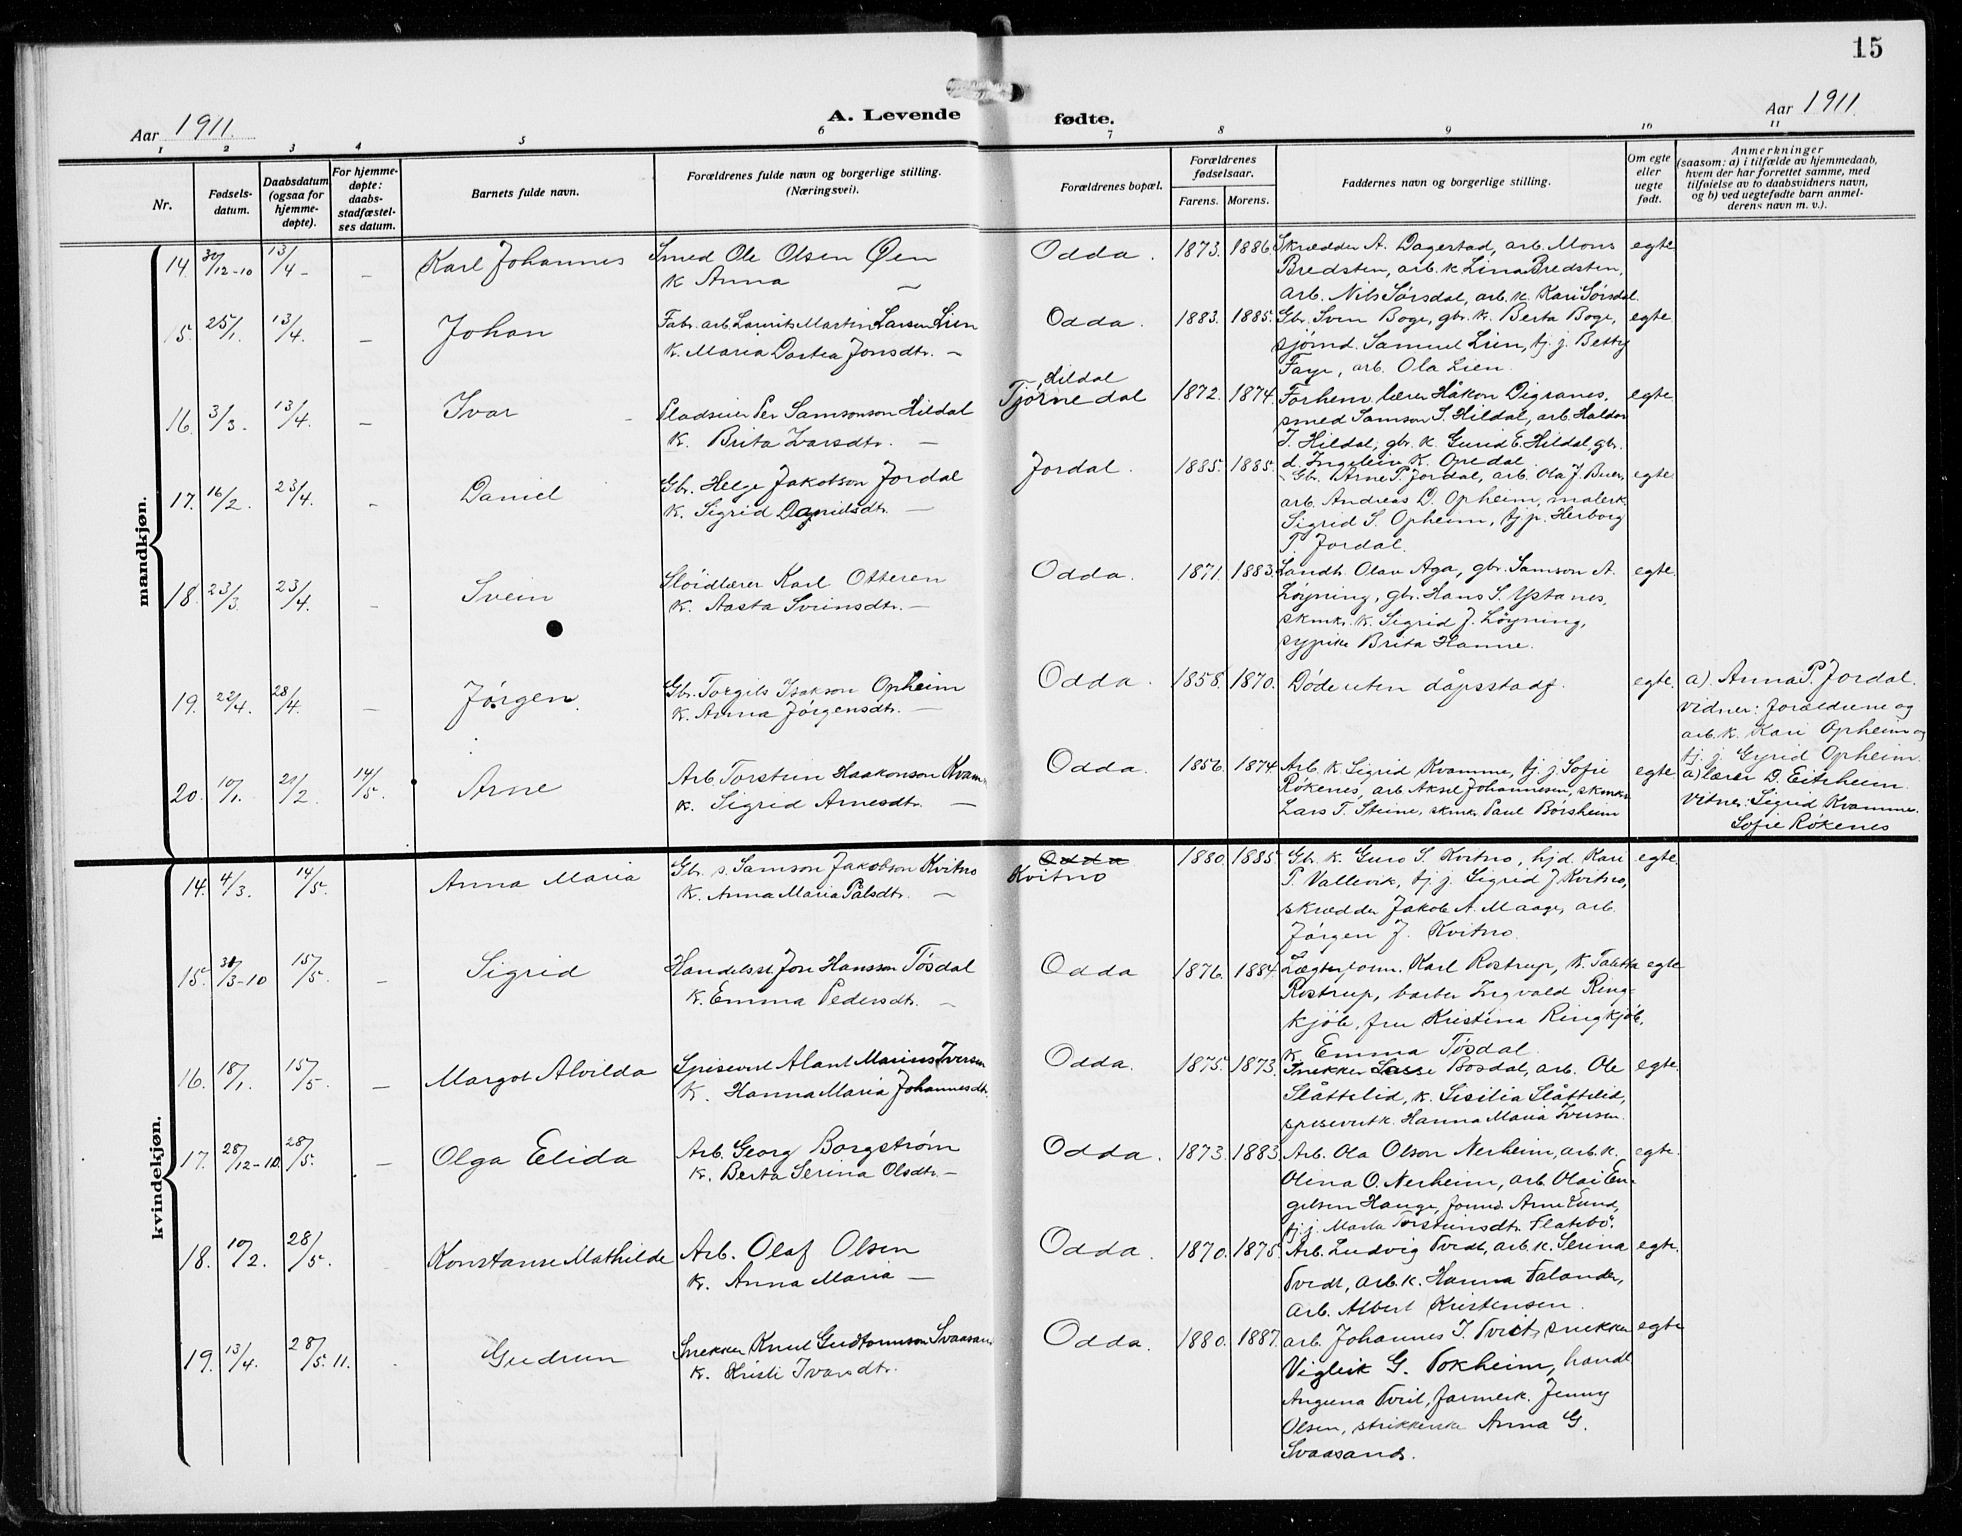 15
Aar 1911.
A. Levende
fødte.
Aar 1911.
1 2 3 4 5 6 7 8 9 10 11
Nr.
Fødsels-
datum.
Daabsdatum
(ogsaa for
hjemme-
døpte).
For hjemme-
døpte:
daabs-
stadfæstel-
ses datum.
Barnets fulde navn.
Forældrenes fulde navn og borgerlige stilling.
(Næringsvei).
Forældrenes bopæl.
Forældrenes
fødselsaar.
Farens. Morens.
Faddernes navn og borgerlige stilling.
Om egte
eller
uegte
født.
Anmerkninger
(saasom: a) i tilfælde av hjemmedaab,
hvem der har forrettet samme, med
tilføielse av to daabsvidners navn,
og b) ved uegtefødte barn anmel-
derens navn m. v.).
mandkjøn.
14. 30/12-10 13/4 - - Karl Johannes Smed Ole Olsen Øen Odda. 1873. 1886. Skrædder A. Dagestad, arb. Mons egte
k Anna — Bredsten, arb. k Lina Bredsten,
arb. Nils Sørsdal, arb. k. Kari Sørsdal.
15. 25/1. 13/4. - Johan Fabr. arb. Laurits Martin Larsen Lien Odda. 1883. 1885. Gbr. Sven Boge, gbr. k. Berta Boge, egte.
k. Maria Dortea Jonsdtr. — sjømd. Samuel Lien, tj. j. Betty
Faye, arb. Ola Lien.
Hildal
16. 3/3. 13/4. - Ivar Pladseier Per Samsonson Hildal Tjørnedal 1872. 1874. Forhem. lærer Håkon Digranes, egte.
k. Brita Larsdtr. — smed Samson S. Hildal, arb. Haldor
I. Hildal, gbr. k. Gurid E. Hildal, gbr.
d. Ingeleiv K. Opedal
17. 16/2. 23/4. - Daniel Gbr. Helge Jakobson Jordal Jordal. 1885. 1885. Gbr. Arne P. Jordal, arb. Ola J. Buer, egte.
k. Sigrid Danielsdtr. — arb. Andreas D. Opheim, malerk.
Sigrid S. Opheim, tj. p. Herborg
T. Jordal.
18. 23/3. 23/4. - Svein Sløidlærer Karl Otteren Odda. 1871. 1883. Landh. Olav Aga, gbr. Samson A. egte.
k. Aasta Svensdtr. — Løyning, gbr. Hans S. Ystanes,
skmk. k. Sigrid J. Løyning,
sypike Brita Hamre.
19. 22/4. 28/4. - Jørgen. Gbr. Torgils Isakson Opheim Odda. 1858. 1870. Døde uten dåpsstadf. egte. a). Anna P. Jordal.
k. Anna Jørgensdtr. — vidner: forældrene og
arb. k. Kari Opheim og
tj. j. Gyrid Opheim.
20. 10/1. 21/2. 14/5. Arne Arb. Torstein Haakonson Kvam Odda. 1856. 1874 Arb. k. Sigrid Kvamme, tj. j. Sofie egte. a) lærer D. Eitrheim.
k. Sigrid Arnesdtr. — Røkenes, arb. Aksel Johannesen, skmk. Vitner: Sigrid Kvamme.
Lars T. Steine, skmk. Paul Børsheim Sofie Røkenes
kvindekjøn.
14. 4/3. 14/5. Anna Maria Gbr. s. Samson Jakobson Kvitno Odda 1880. 1885. Gbr. k. Guro S. Kvitno, hjd. Kari egte.
k. Anna Maria Pålsdtr. — Kvitno P. Vallevik, tj. j. Sigrid J. Kvitno,
skrædder Jakob A. Maage, arb.
Jørgen J. Kvitno.
15. 30/3-10 15/5. - Sigrid Handelsst. Jon Hansson Tøsdal Odda 1876. 1884. Lægterform. Karl Rostrup, k. Tabitta egte
k. Emma Pedersdtr. — Rostrup, barber Ingvald Ring-
kjøb, fru Kristina Ringkjøb,
k. Emma Tøsdal.
16. 18/1. 15/5. - Margot Alvilda Spisevert Alant Marius Iversen Odda. 1875. 1873. Snekker Lasse Bosdal, arb. Ole egte.
k. Hanna Maria Johannesdtr. Slåttelid, k. Sisilia Slåttelid,
spisevert k. Hanna Maria Iversen.
17. 28/12-10. 28/5. - Olga Elida Arb. Georg Borgstrøm Odda. 1873. 1883. Arb. Ola Olson Nerheim, arb. k. egte.
k. Berta Serina Olsdtr. — Olina O. Nerheim, arb. Olai En-
gelsen Hauge, formd. Arne Lund,
tj. j. Marta Torsteinsdtr. Flatebø.
18. 10/2. 28/5. Konstanse Mathilde Arb. Olaf Olsen Odda. 1870. 1875. Arb. Ludvig Tvedt, arb. k. Serina egte.
k. Anna Maria — Tvedt, arb. k. Hanna Falander,
arb. Albert Kristensen.
19. 13/4. 28/5. 11. Gudrun Snekker Knut Gudtormson Svaasand Odda. 1880. 1887. arb. Johannes I. Tveit, snekker egte
k. Kristi Ivarsdtr. Vigleik G. Tokheim, handl.
Tveit, farmerk. Jenny
Olsen, strikkerske Anna G.
Svaasand.